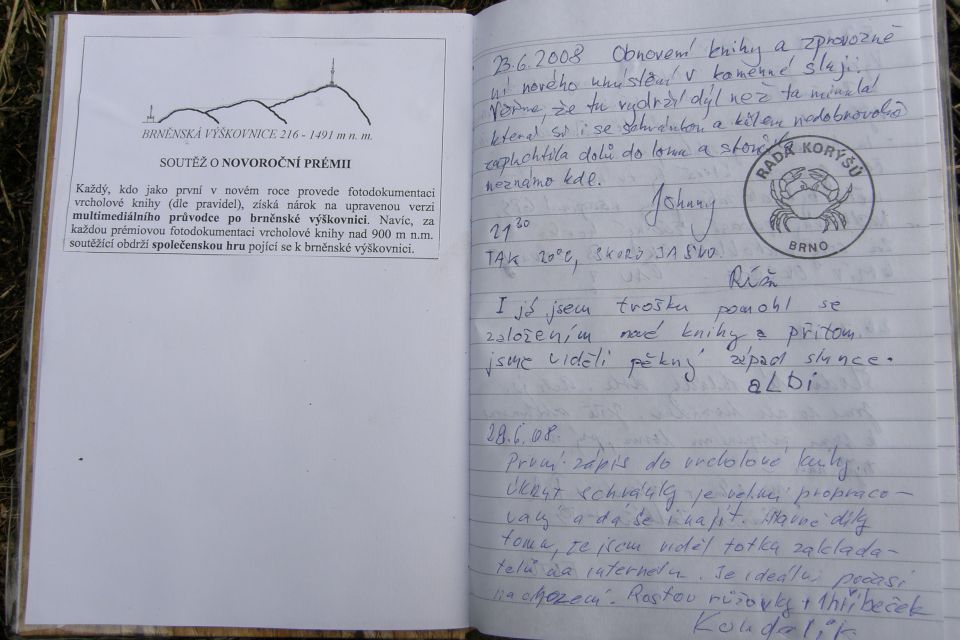 BRNĚNSKÁ VÝŠKOVNICE 216 - 1491 m n. m.
SOUTĚŽ O NOVOROČNÍ PRÉMII
Každý, kdo jako první v novém roce provede fotodokumentaci
vrcholové knihy (dle pravidel), získá nárok na upravenou verzi
multimediálního průvodce po brněnské výškovnici. Navíc, za
každou prémiovou fotodokumentaci vrcholové knihy nad 900 m n.m.
soutěžící obdrží společenskou hru pojící se k brněnské výškovnici.
23.6.2008 Obnovení knihy a zprovozně
ní nového umístění v kamenné sluji.
Věřme, že tu vydrží dýl než ta minulá
která si i se schránkou a kůlem nedobrovolně
zaplachtila dolů do lomu a
neznámo kde.
Johnny
RADA KORÝŠŮ
BRNO
21 30
TAK 20°C, SKORO JASNO
I já jsem trošku pomohl se
založením nové knihy a přitom
jsme viděli pěkný západ slunce.
aLDi
29.6.08.
První zápis do vrcholové knihy.
Úkryt schránky je velmi propraco-
vaný a dá se i najít. Hlavně díky
tomu, že jsem viděl fotku zaklada-
telů na internetu. Je ideální počasí
na chození. Rostou růžovky + 1 hříbeček
Kondelík